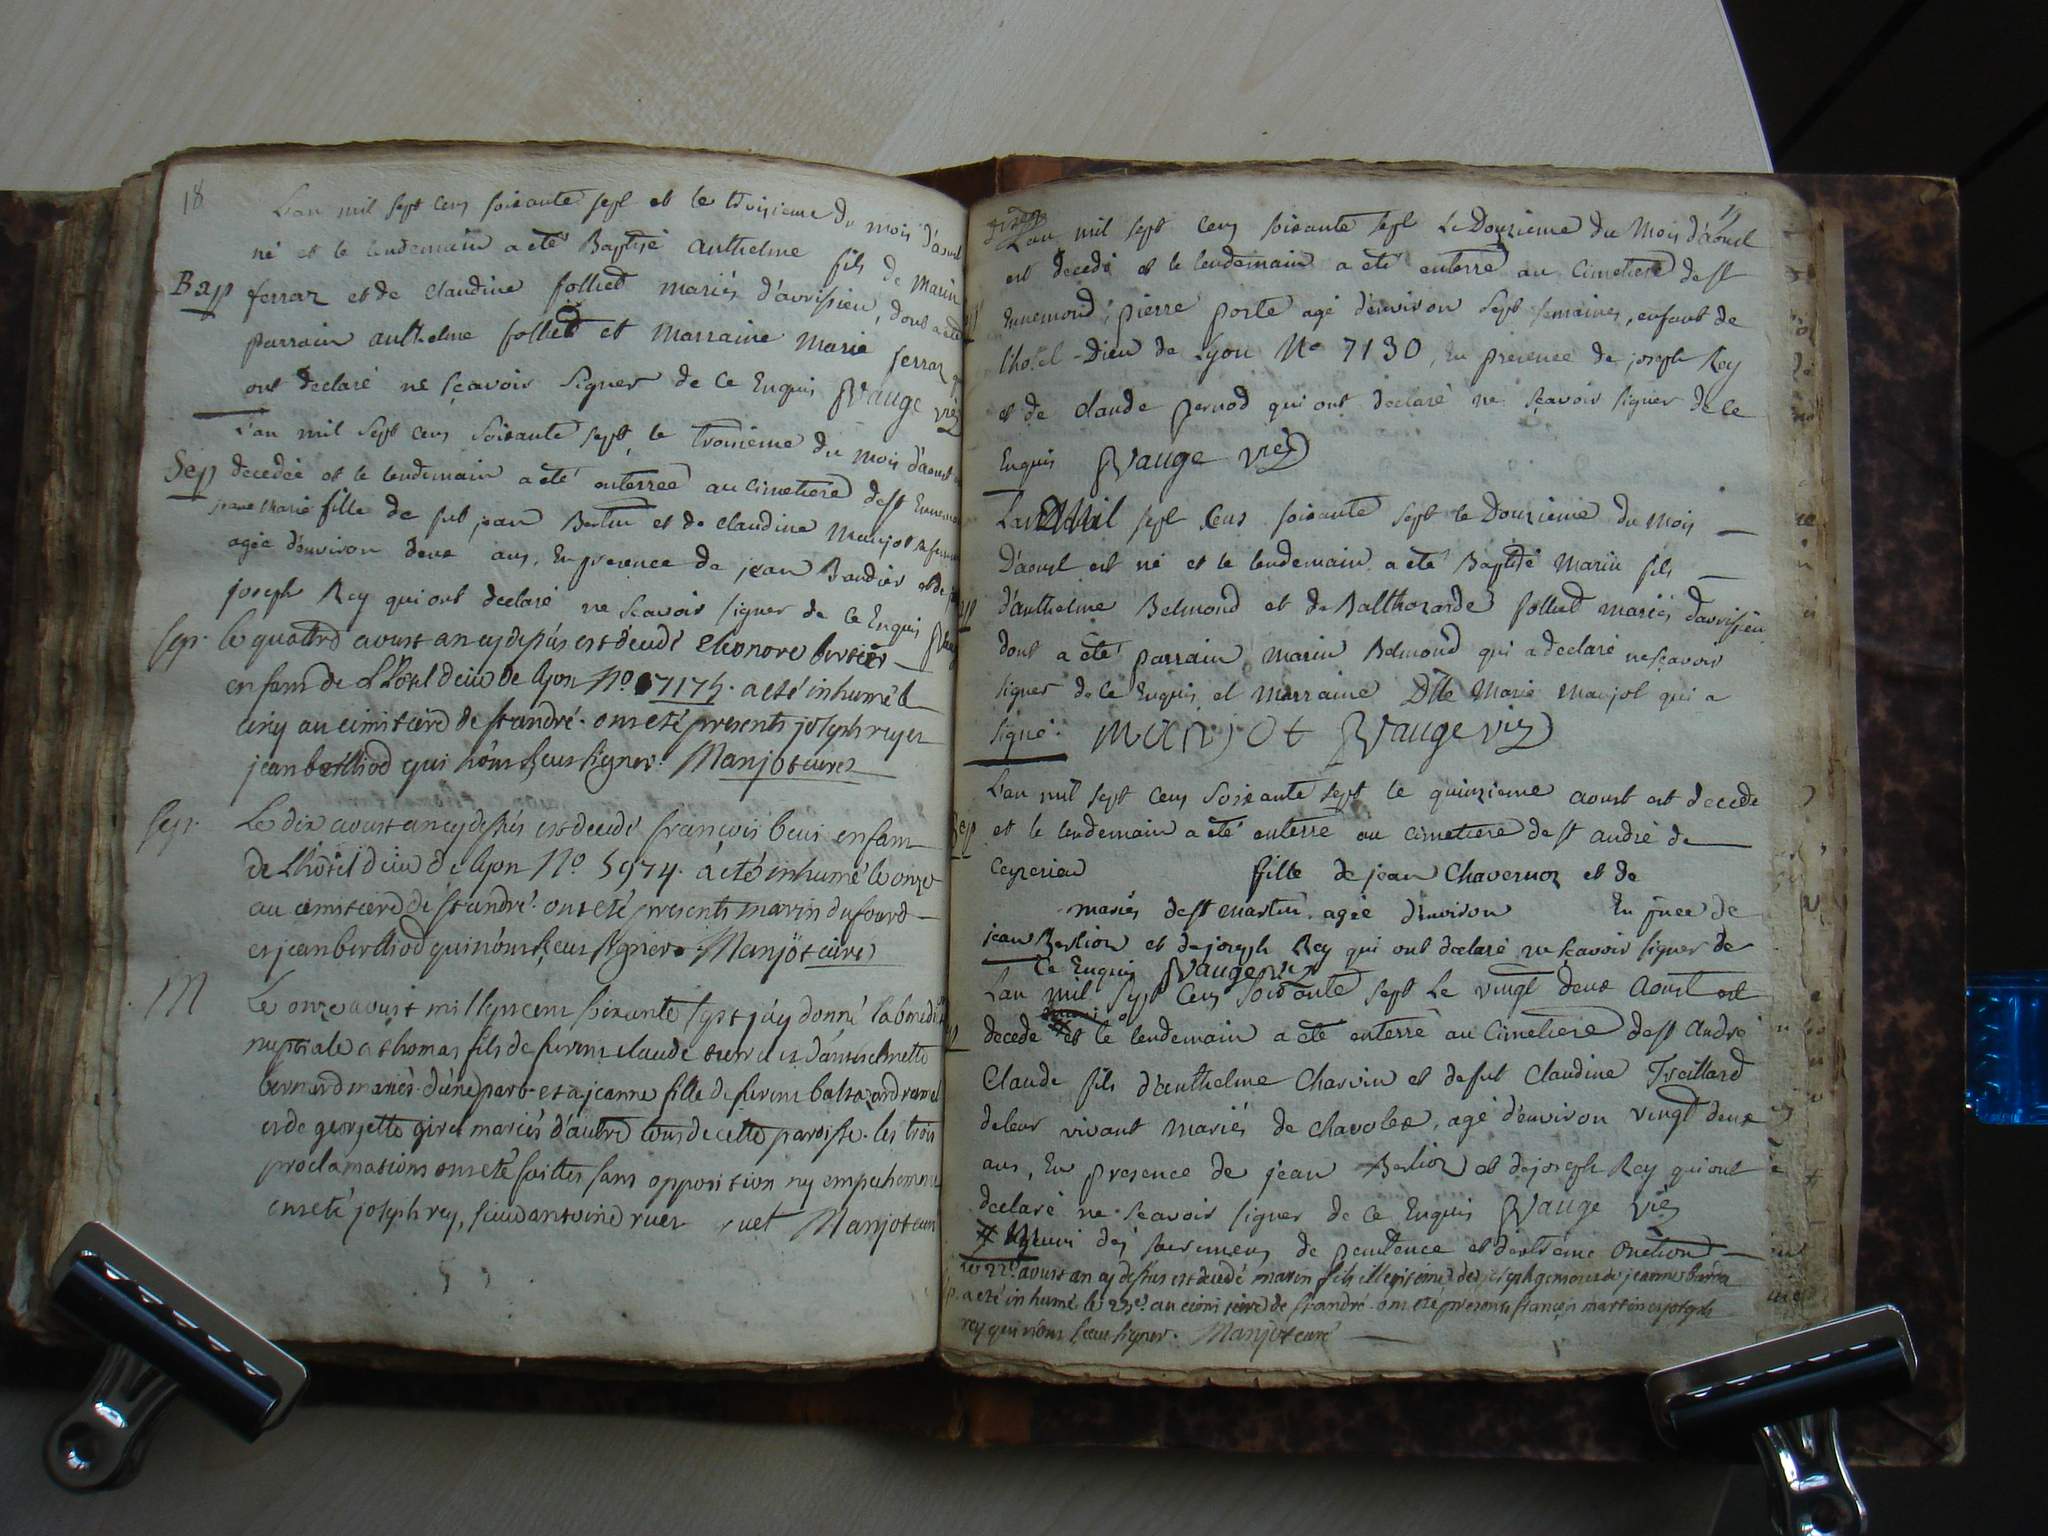 18
L'an mil sept cens soixante sept et le troisieme du mois d'aoust
né et le lendemain a eté Baptisé anthelme fils de Marin
Bap ferraz et de claudine folliet mariés d'avrissieu, dont a eté
parrain anthelme folliet et Marraine Marie ferraz
ont declaré ne sçavoir signer de ce Enquis Vauge vic
L'an mil sept cens soixante sept le troisieme du mois d'aoust
Sep decedée et le lendemain a eté enterrée au cimetiere de st
jeane Marie fille de fut jean et de claudine Manjot
agée d'environ deux ans, En presence de jean Baudier et de
joseph Rey qui ont declaré ne sçavoir signer de ce Enquis
sep. le quattre aoust an cy dessus est decedé eleonore
enfant de L'Hotel dieu de lyon No 7175. a eté inhumé le
cinq au cimitiere de st andré. ont eté presents joseph rey et
jean berthiod qui n'ont sceus signer. Manjot curé
sep. Le dix aoust an cy dessus est decedé françois enfant
de L'hotel dieu de lyon No 5974. a eté inhumé le onze
au cimitiere de st andré. ont eté presents marin dufourd
et jean berthiod qui n'ont sceus signer. Manjot curé
M Le onze aoust mil sept cent soixante sept j'ay donné la benedi
nuptiale a thomas fils de claude et d'antoinette
bernard mariés d'une part et a jeanne fille de
et de georjette mariés d'autre tous de cette paroisse. les trois
proclamations ont eté faittes sans opposition ny empechement
ont eté joseph rey, Manjot curé
L'an mil sept cens soixante sept Le Douzieme du Mois d'aoust
est decedé et le lendemain a eté enterré au cimetiere de st
Ennemond, pierre porte agé d'environ sept semaines, enfant de
l'hotel-Dieu de Lyon No 7130, En presence de joseph Rey
et de claude pernod qui ont declaré ne sçavoir signer de ce
Enquis Vauge vic
L'an Mil sept cens soixante sept le Douzieme du mois
D'aoust est né et le lendemain a eté Baptisé Marin fils
d'anthelme Belmond et de Balthazarde folliet mariés d'avrissieu
dont a eté parrain marin Belmond qui a declaré ne sçavoir
signer de ce Enquis et marraine Dlle Marie manjot qui a
signé. manjot Vauge vic
L'an mil sept cens soixante sept le quinzieme aoust est decedé
Sep et le lendemain a eté enterré au cimetiere de st andré de
Ceyzerieu fille de jean Chavernoz et de
mariés de st martin, agée d'environ En p̄nce de
jean Berlion et de joseph Rey qui ont declaré ne sçavoir signer de
ce Enquis Vauge vic
L'an mil sept cens soixante sept Le vingt deux aoust est
decedé et le lendemain a eté enterré au cimetiere de st andré
Claude fils d'anthelme Charvin et de fut Claudine Traillard
de leur vivant mariés de Chavolex, agé d'environ vingt deux
ans, En presence de jean Berlion et de joseph Rey qui ont
declaré ne sçavoir signer de ce Enquis Vauge vic
# Muni des sacremens de penitence et d'extreme onction
Le 22e aoust an cy dessus est decedé marin fils illegitime de joseph
a eté inhumé le 23e au cimitiere de st andré. ont eté presents françois martin et joseph
rey qui n'ont sceus signer. Manjot curé